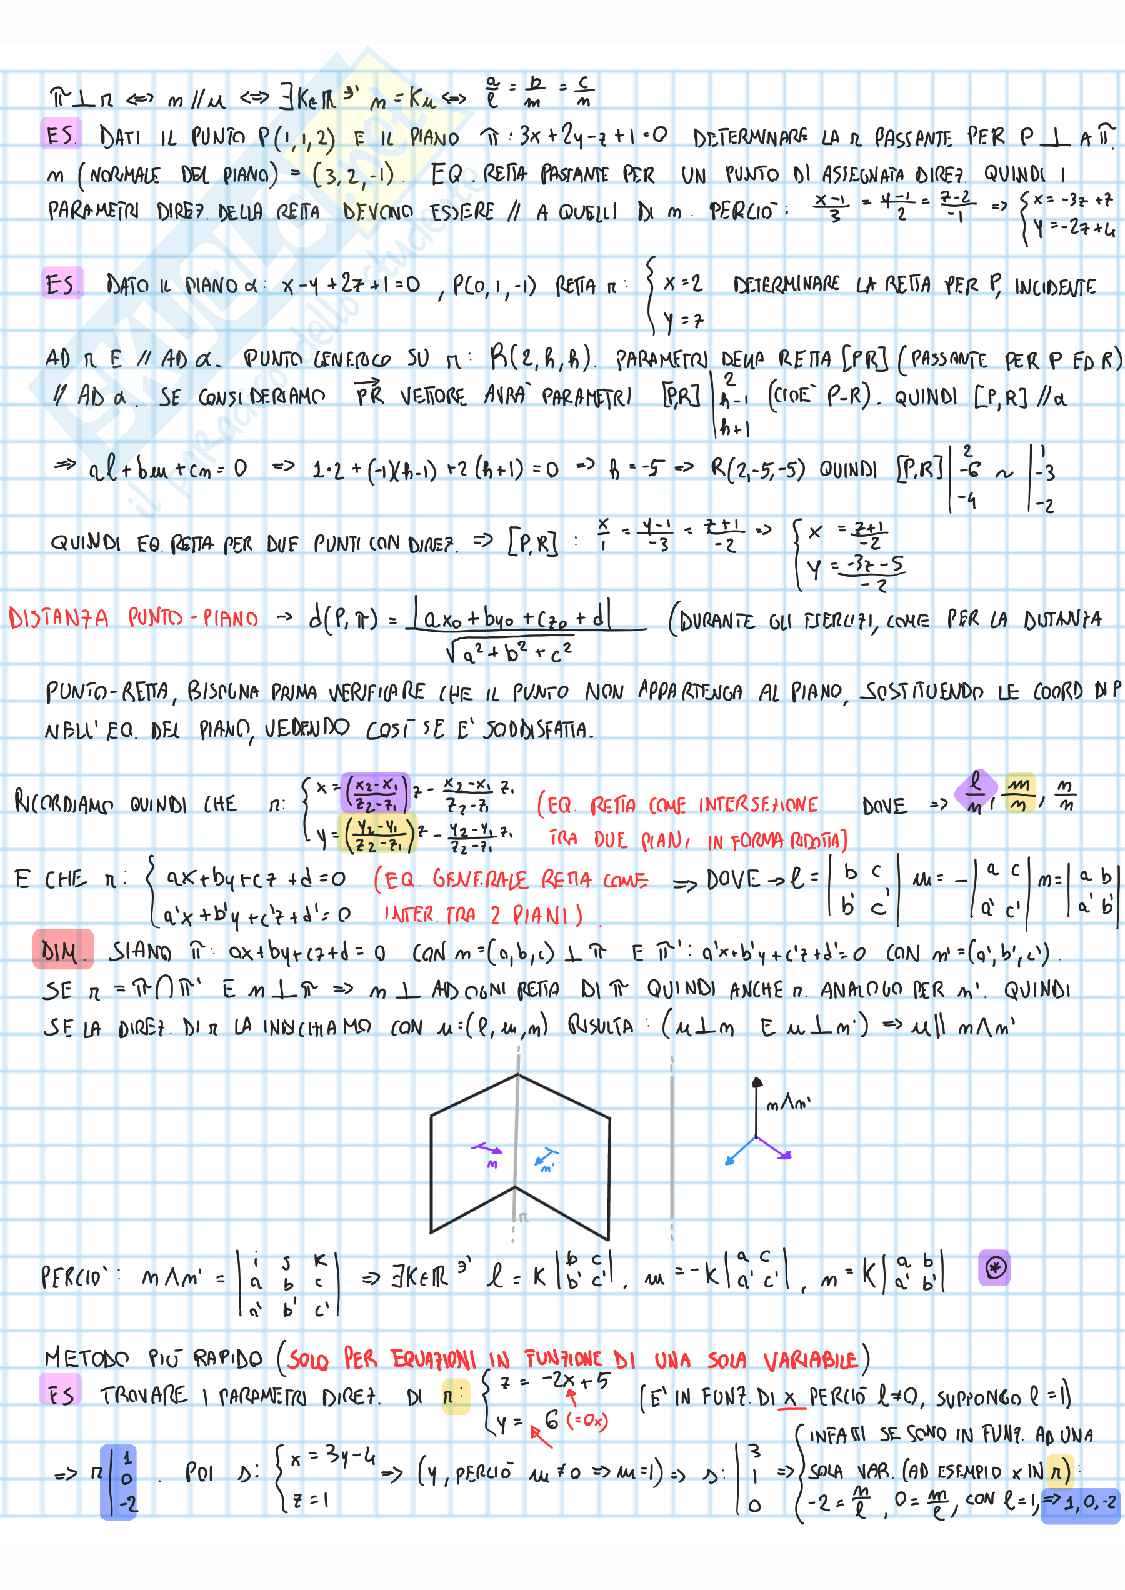 π ⊥ r ⇔ n // u ⇔ ∃K∈ℝ ∋' n = Ku ⇔ a/l = b/m = c/n
ES. DATI IL PUNTO P(1,1,2) E IL PIANO π: 3x+2y-z+1=0 DETERMINARE LA r PASSANTE PER P ⊥ A π.
n (NORMALE DEL PIANO) = (3,2,-1). EQ. RETTA PASSANTE PER UN PUNTO DI ASSEGNATA DIREZ. QUINDI I
PARAMETRI DIREZ. DELLA RETTA DEVONO ESSERE // A QUELLI DI n. PERCIÒ: (x-1)/3 = (y-1)/2 = (z-2)/-1 => { x=-3z+7
y=-2z+4
ES DATO IL PIANO α: x-y+2z+1=0, P(0,1,-1) RETTA r: { x=2 DETERMINARE LA RETTA PER P, INCIDENTE
y=z
AD r E // AD α. PUNTO GENERICO SU r: R(2,h,h). PARAMETRI DELLA RETTA [PR] (PASSANTE PER P ED R)
// AD α. SE CONSIDERIAMO PR VETTORE AVRÀ PARAMETRI [P,R] | 2 h-1 h+1 (CIOÈ P-R). QUINDI [P,R] // α
=> al+bm+cn=0 => 1·2+(-1)(h-1)+2(h+1)=0 => h=-5 => R(2,-5,-5) QUINDI [P,R] | 2 -6 -4 ~ | 1 -3 -2
QUINDI EQ. RETTA PER DUE PUNTI CON DIREZ. => [P,R]: x/1 = (y-1)/-3 = (z+1)/-2 => { x = (z+1)/-2
y = (-3z-5)/-2
DISTANZA PUNTO-PIANO → d(P,π) = |ax₀+by₀+cz₀+d| / √(a²+b²+c²) (DURANTE GLI ESERCIZI, COME PER LA DISTANZA
PUNTO-RETTA, BISOGNA PRIMA VERIFICARE CHE IL PUNTO NON APPARTENGA AL PIANO, SOSTITUENDO LE COORD DI P
NELL'EQ. DEL PIANO, VEDENDO COSÌ SE E' SODDISFATTA.
RICORDIAMO QUINDI CHE r: { x = ((x₂-x₁)/(z₂-z₁))z - (x₂-x₁)/(z₂-z₁) z₁ (EQ. RETTA COME INTERSEZIONE DOVE => l/n, m/n, n/n
y = ((y₂-y₁)/(z₂-z₁))z - (y₂-y₁)/(z₂-z₁) z₁ TRA DUE PIANI IN FORMA RIDOTTA)
E CHE r: { ax+by+cz+d=0 (EQ. GENERALE RETTA COME => DOVE → l = |b c; b' c'| m = -|a c; a' c'| n = |a b; a' b'|
a'x+b'y+c'z+d'=0 INTER. TRA 2 PIANI)
DIM. SIANO π: ax+by+cz+d=0 CON n=(a,b,c) ⊥ π E π': a'x+b'y+c'z+d'=0 CON n'=(a',b',c').
SE r = π∩π' E n⊥π => n ⊥ AD OGNI RETTA DI π QUINDI ANCHE r. ANALOGO PER n'. QUINDI
SE LA DIREZ. DI r LA INDICHIAMO CON u=(l,m,n) RISULTA: (u⊥n E u⊥n') => u || n∧n'
n∧n'
n
n'
r
PERCIÒ: n∧n' = |i j k; a b c; a' b' c'| => ∃K∈ℝ ∋' l = K|b c; b' c'|, m = -K|a c; a' c'|, n = K|a b; a' b'| ⊛
METODO PIÙ RAPIDO (SOLO PER EQUAZIONI IN FUNZIONE DI UNA SOLA VARIABILE)
ES TROVARE I PARAMETRI DIREZ. DI r: { z = -2x+5 (E' IN FUNZ. DI x PERCIÒ l≠0, SUPPONGO l=1)
y = 6 (=0x)
=> r | 1 0 -2. POI s: { x = 3y-4 z = 1 => (y, PERCIÒ m≠0 => m=1) => s: | 3 1 0 => { INFATTI SE SONO IN FUNZ. AD UNA
SOLA VAR. (AD ESEMPIO x IN r):
-2 = n/l, 0 = m/l, CON l=1, => 1,0,-2